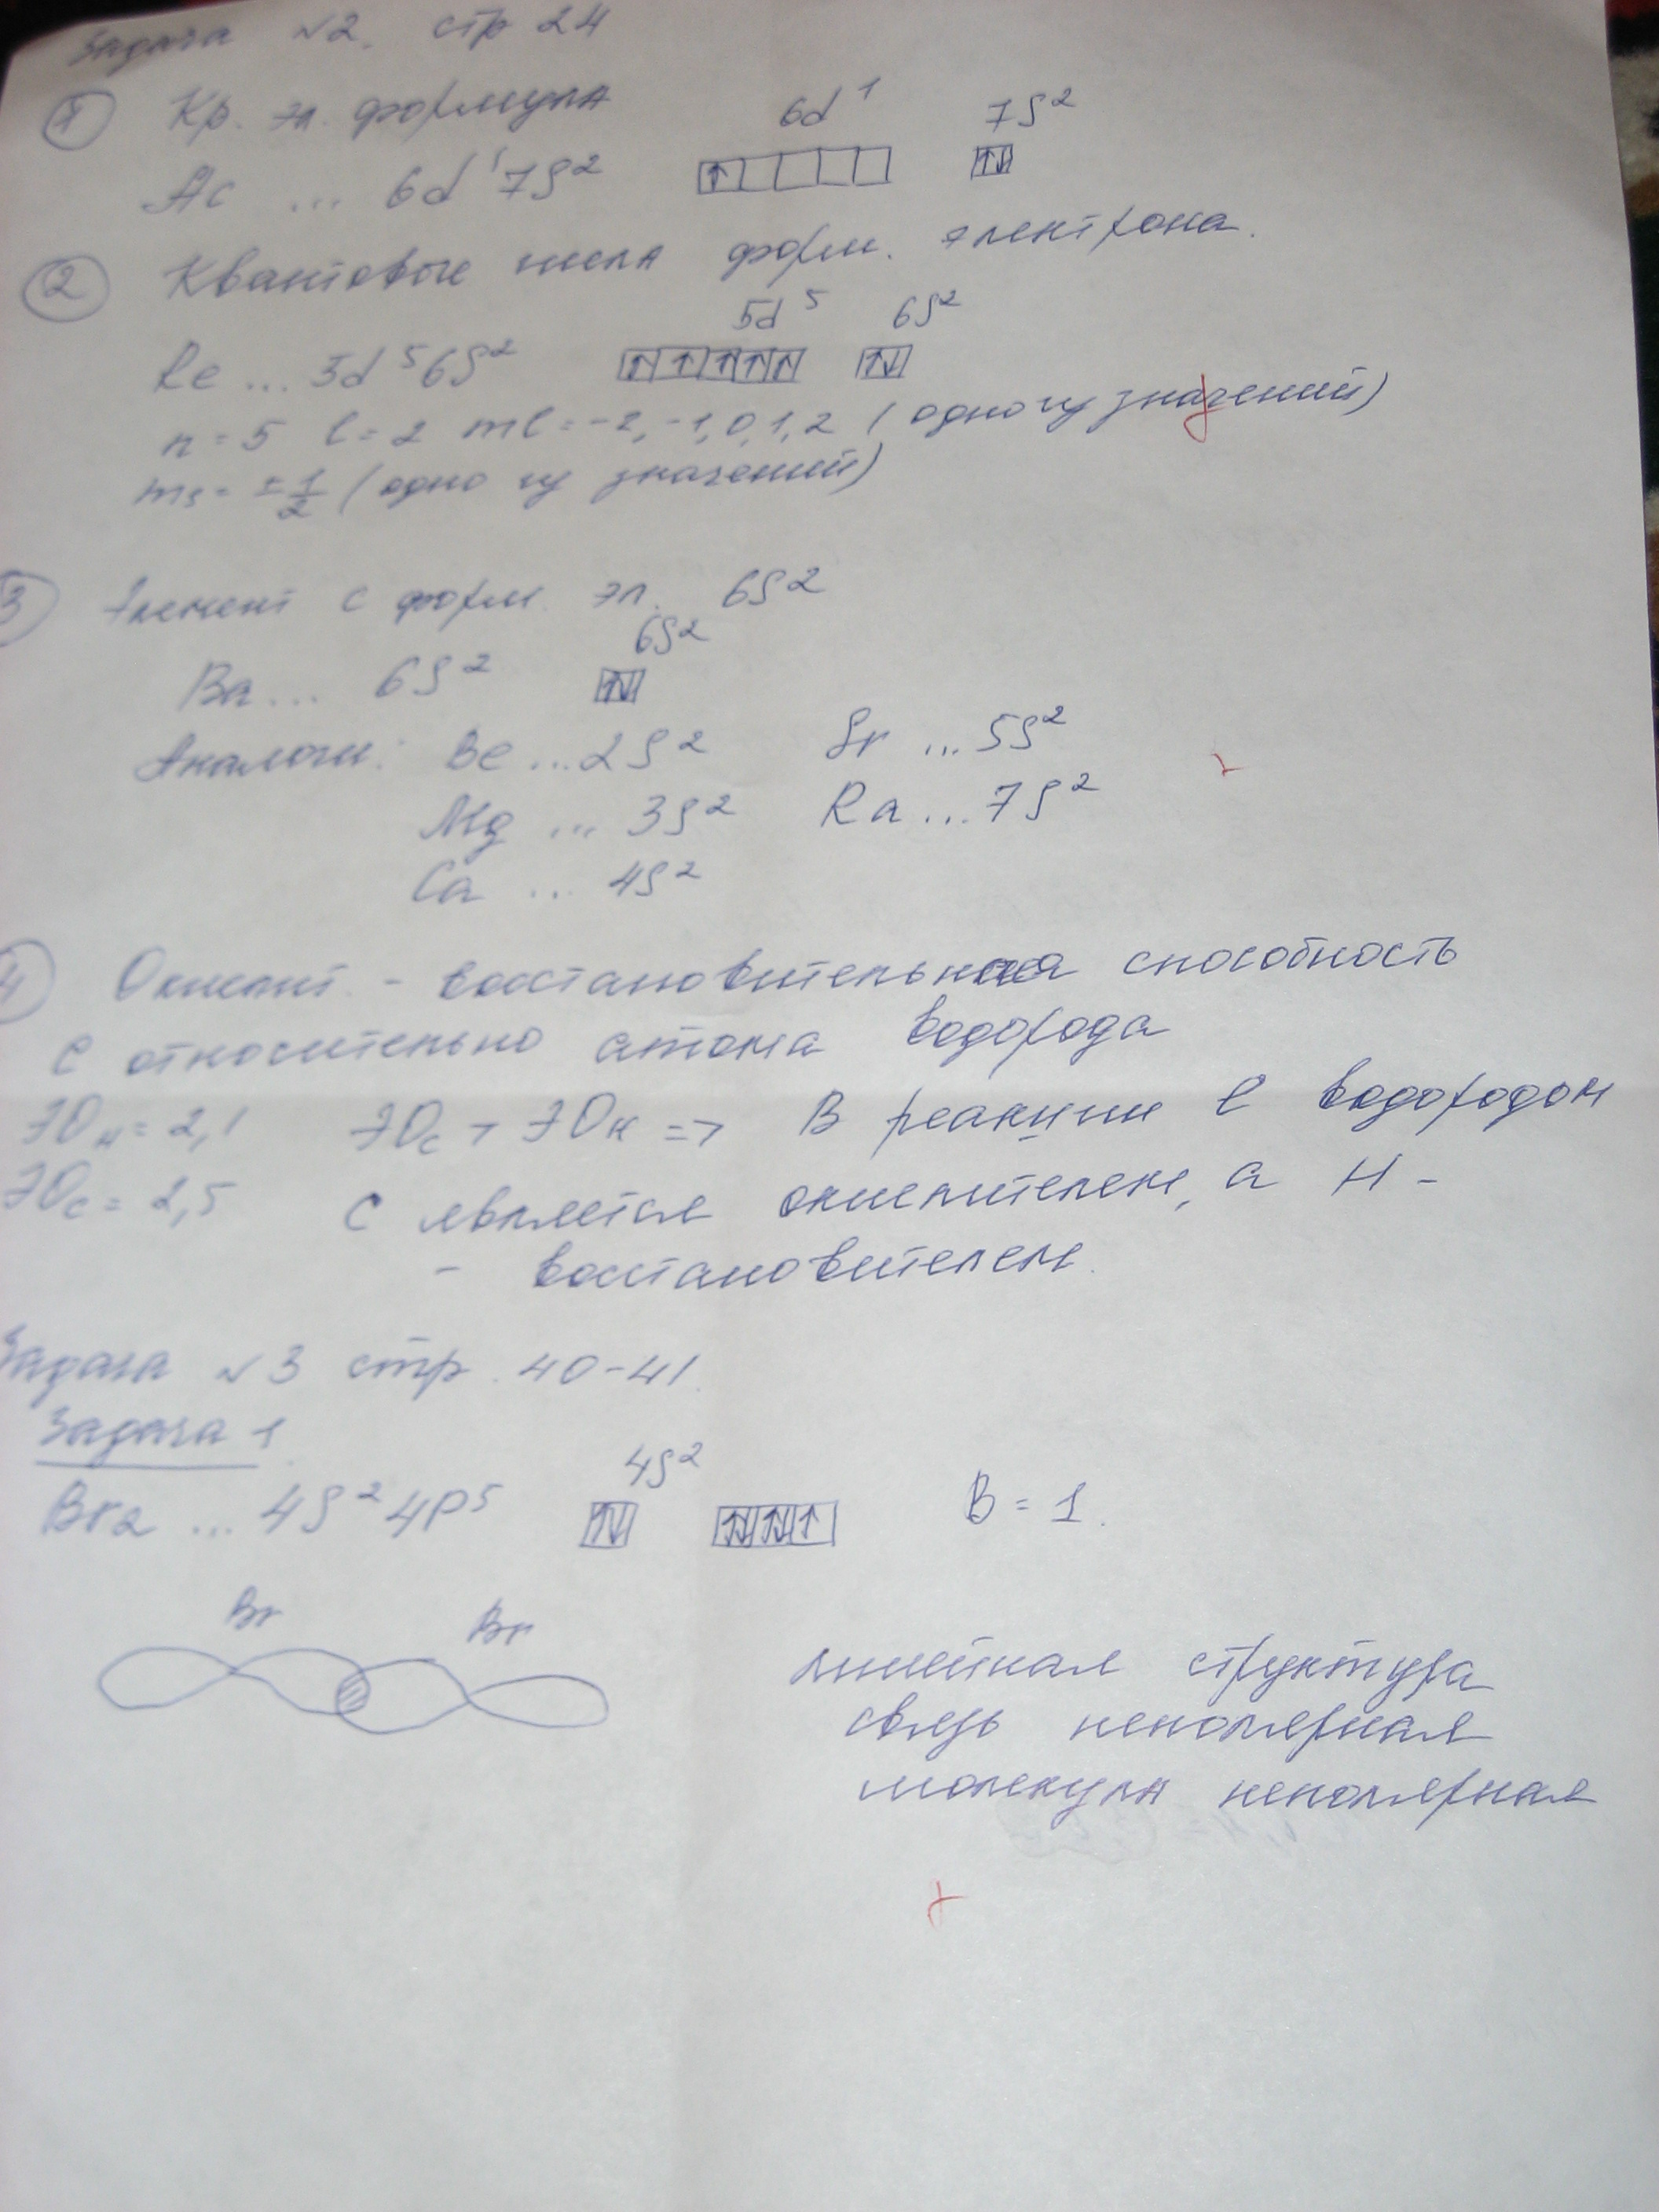 Задача №2. стр 24
1 Кр. эл. формула 6d¹ 7S²
Ac ... 6d¹7S² ↑ ↑↓
2 Квантовые числа форм. электрона.
5d⁵ 6S²
Re ... 5d⁵6S² ↑ ↑ ↑ ↑ ↑ ↑↓
n = 5 l = 2 ml = -2, -1, 0, 1, 2 (одно из значений)
ms = ±1/2 (одно из значений)
3 Элемент с форм. эл. 6S²
6S²
Ba ... 6S² ↑↓
Аналоги: Be ... 2S² Sr ... 5S²
Mg ... 3S² Ra ... 7S²
Ca ... 4S²
4 Окислит. - восстановительная способность
C относительно атома водорода
ЭОн = 2,1 ЭОс > ЭОн => В реакции с водородом
ЭОс = 2,5 C является окислителем, а H -
- восстановителем.
Задача №3 стр. 40-41.
Задача 1
4S²
Br2 ... 4S²4P⁵ ↑↓ ↑↓ ↑↓ ↑ B = 1.
Br Br
линейная структура
связь неполярная
молекула неполярная